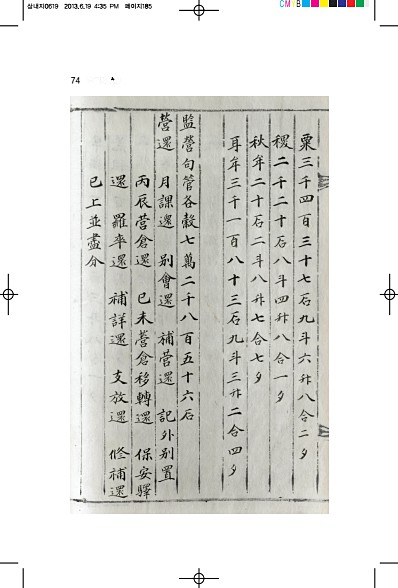 삼내지0619 2013.6.19 4:35 PM 페이지185
CMYB
74
粟三千四百三十七石九斗六升八合二夕
稷二千二十石八斗四升八合一夕
秋牟二十石二斗八升七合七夕
耳牟三千一百八十三石九斗三升二合四夕
監營句管各穀七萬二千八百五十六石
營還 月課還 別會還 補營還 記外別置
丙辰營倉還 己未營倉移轉還 保安驛
還 羅率還 補詳還 支放還 修補還
已上並盡分